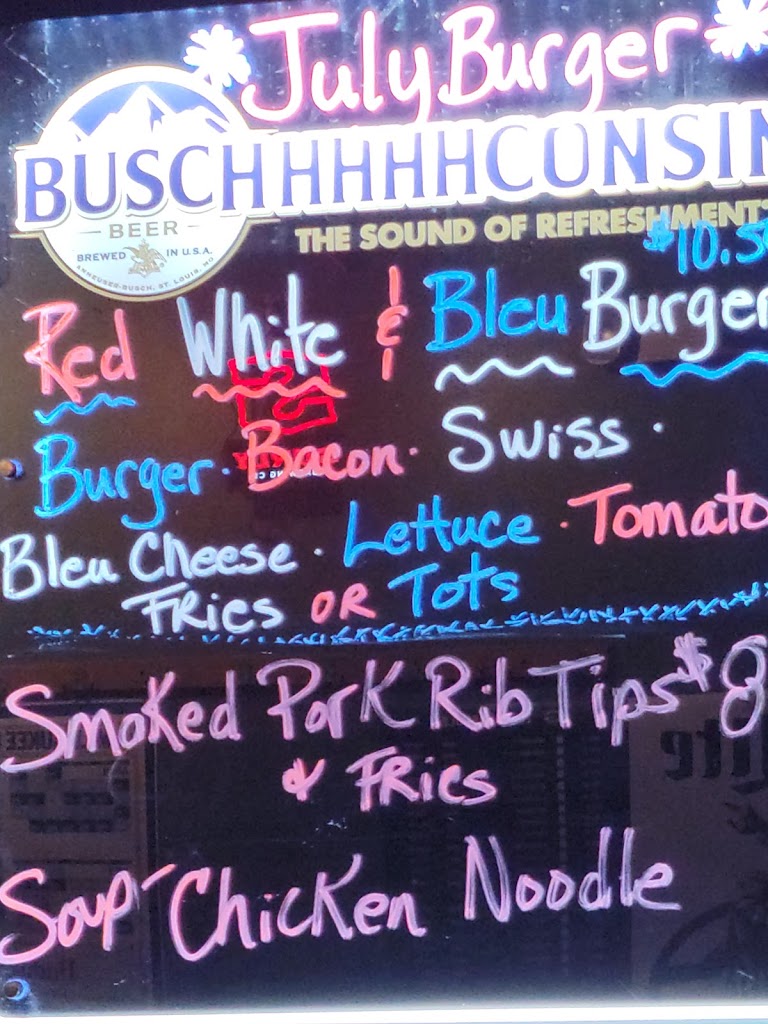 July Burger
BUSCHHHHHCONSIN
BEER
BREWED IN U.S.A.
ANHEUSER-BUSCH, ST. LOUIS, MO
THE SOUND OF REFRESHMENT
$10.50
Red White & Bleu Burger
Burger · Bacon · Swiss ·
Bleu Cheese · Lettuce · Tomato
Fries OR Tots
Smoked Pork Rib Tips $8
& Fries
Soup - Chicken Noodle